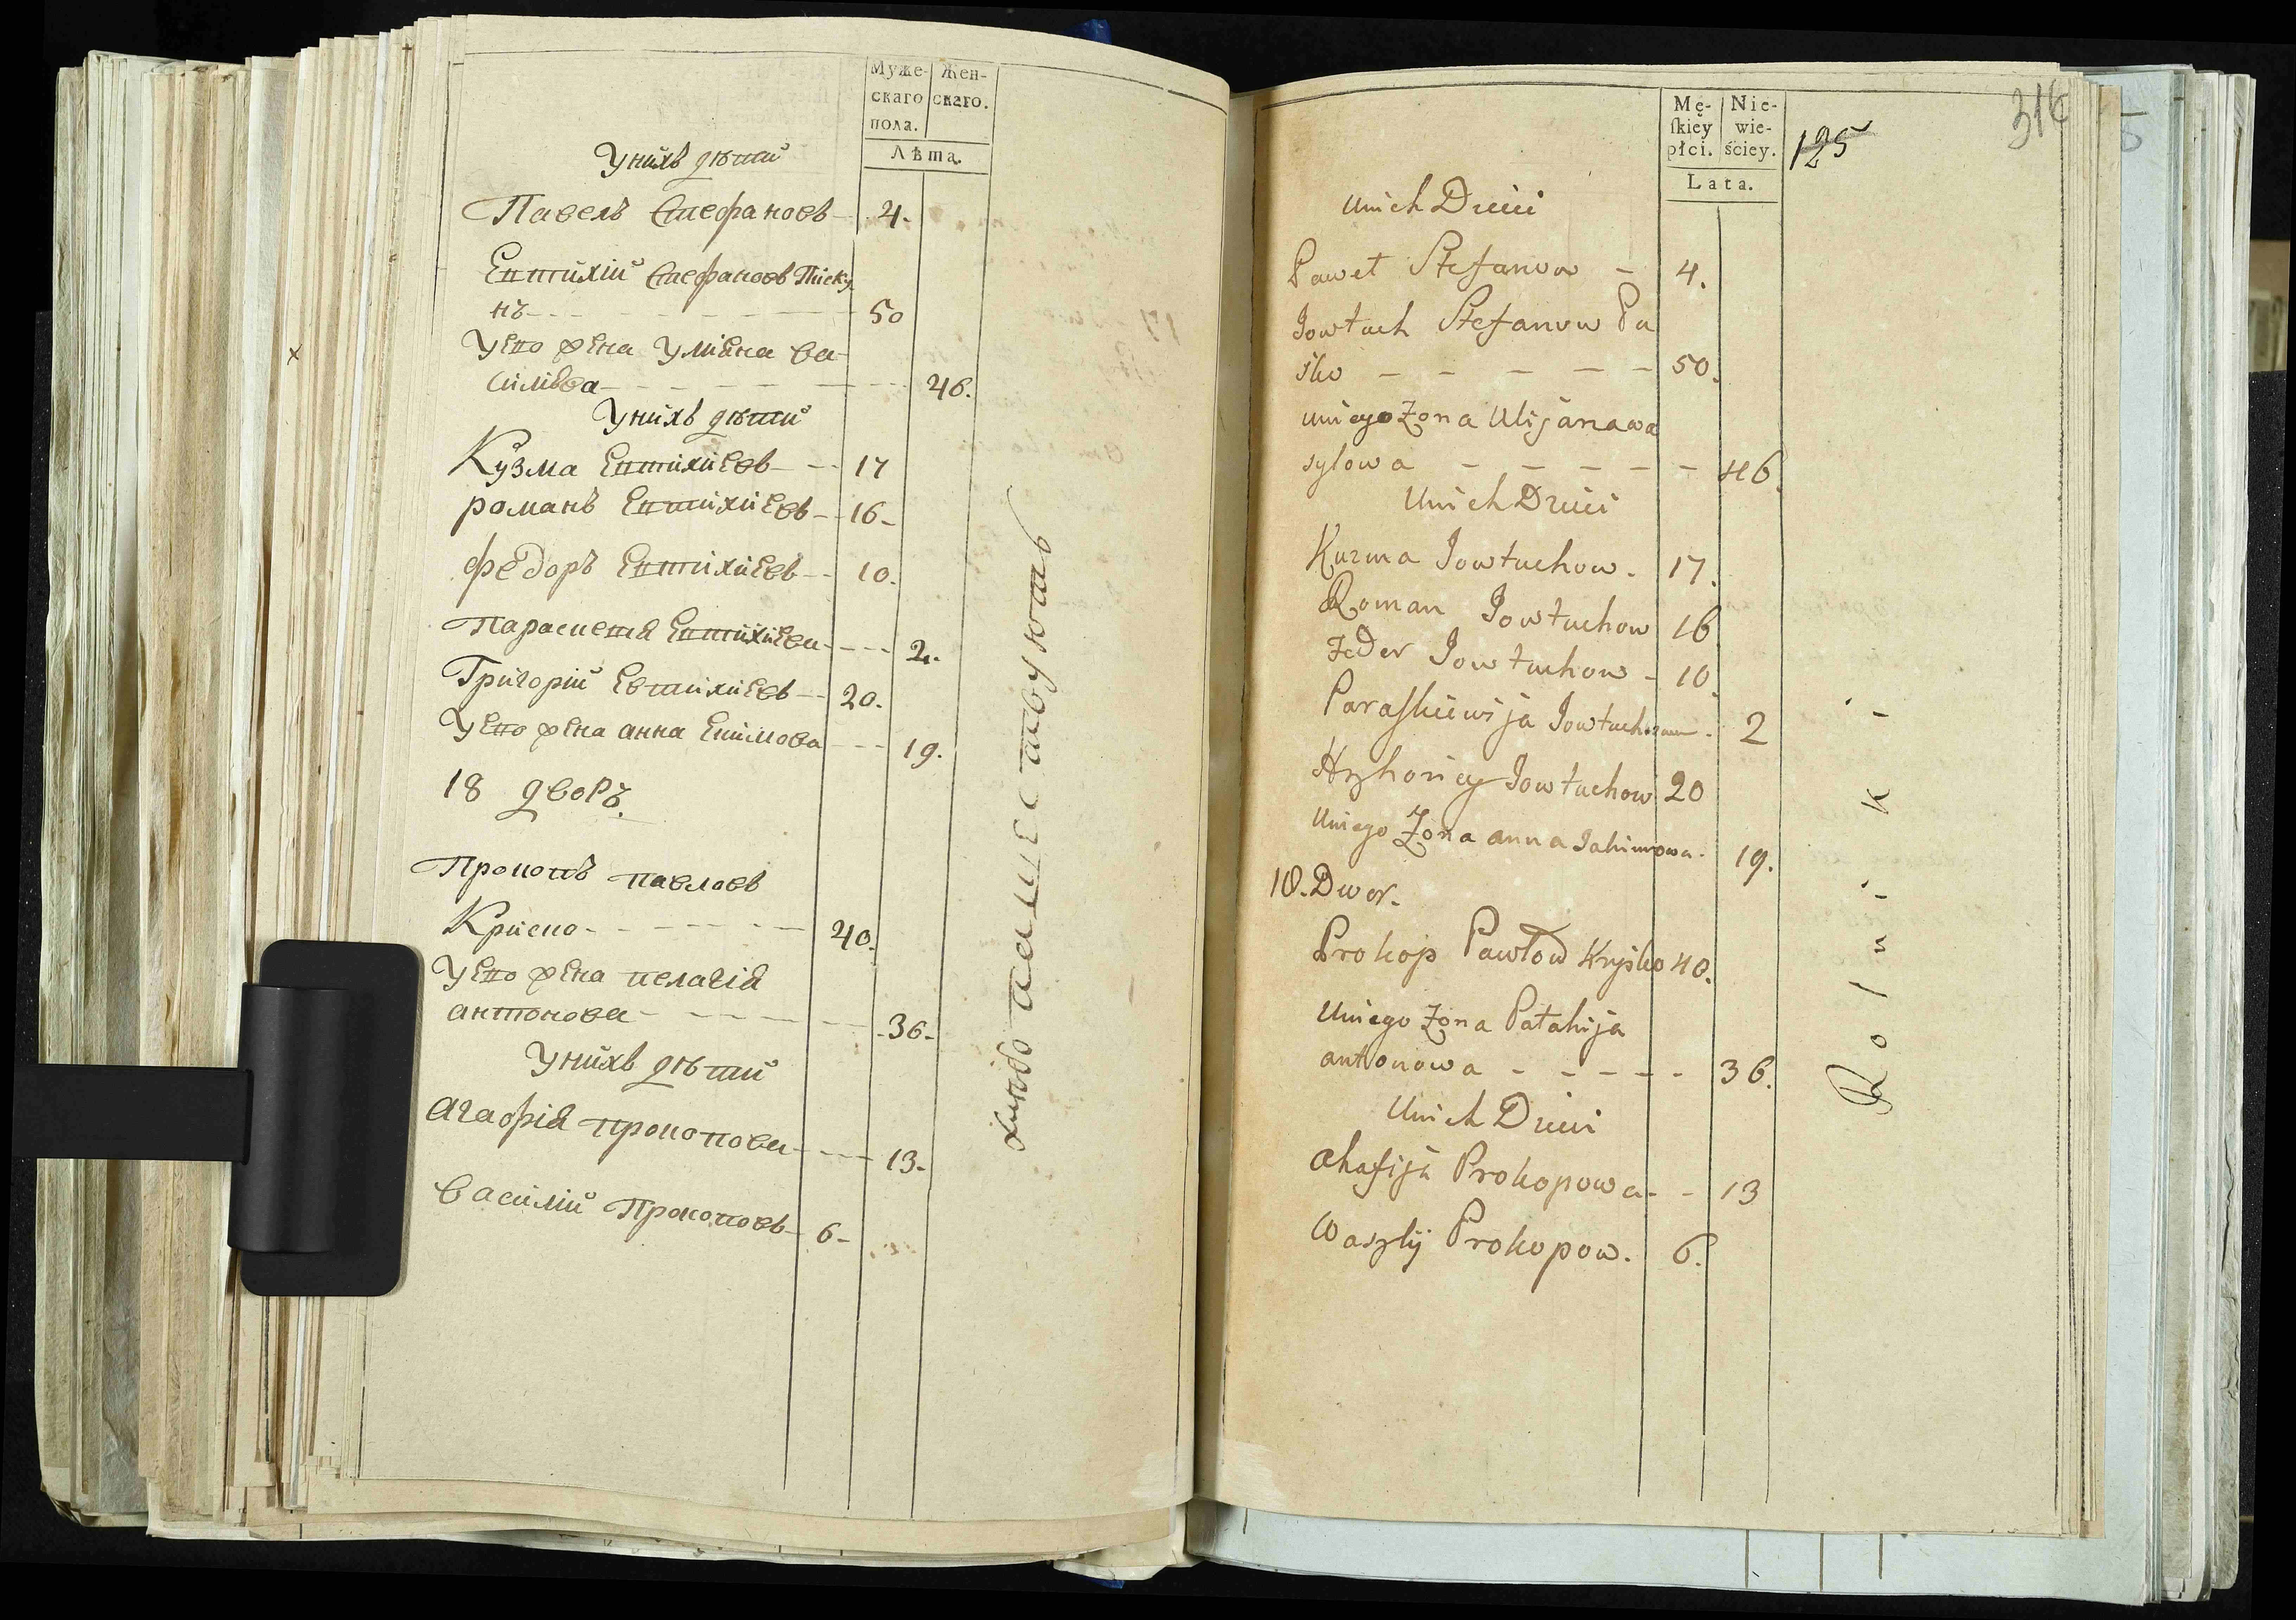 Муже-
скаго
пола.
Жен-
скаго.
Лѣта.
У нихъ дѣти
Павелъ Стефановъ 4.
Евтихій Стефановъ Піску
нъ 50
У его жена Улiяна Ва-
силiева 46.
У нихъ дѣти
Кузма Евтихіевъ 17
романъ Евтихіевъ 16
федоръ Евтихіевъ 10.
Параскетя Евтихіева 2.
Григорій Евтихіевъ 20.
У его жена анна Ефимова 19.
18 дворъ.
Прокопъ павловъ
Криско 40.
У его жена пелагія
антонова 36
У нихъ дѣти
Агафія прокопова 13
Василій Прокоповъ 6
316
125
Mę-
ſkiey
płci.
Nie-
wie-
ściey.
Lata.
U nich Dzieci
Paweł Stefanow 4.
Jowtuch Stefanow Pu
sko 50.
u niego Zona Ulijana wa
sylowa 46.
U nich Dzieci
Kuzma Jowtuchow. 17.
Roman Jowtuchow 16
Feder Jowtuchow 10.
Paraſkiewija Jowtuchowa 2
Hryhoriey Jowtuchow 20
U niego Zona anna Jahimowa. 19.
18. Dwor.
Prokop Pawłow Krysko 40.
U niego Zona Pałahija
antonowa 36.
U nich Dzieci
ahafija Prokopowa 13
Wasylij Prokopow. 6.
Rolniki